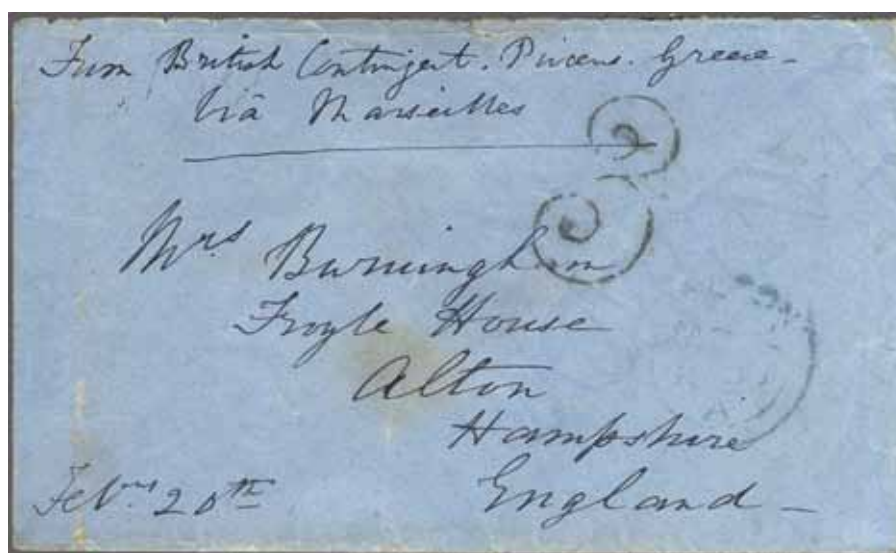 From British Contingent. Piraeus. Greece -
Viâ Marseilles
3
Mrs Burningham
Froyle House
Alton
Hampshire
England -
Feby 20th